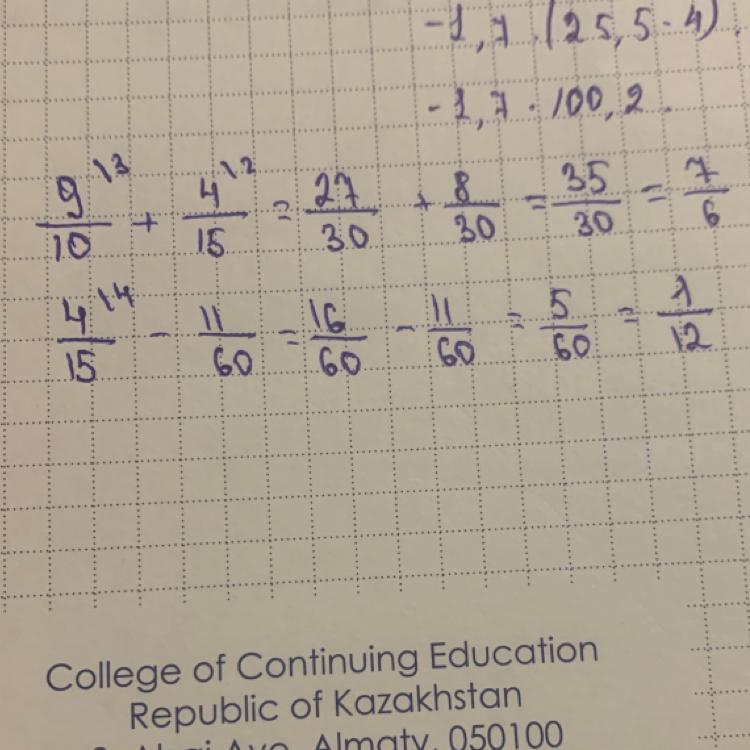 -1,7 · (25,5 · 4)
-1,7 · 100,2
9/10 \3 + 4/15 \2 = 27/30 + 8/30 = 35/30 = 7/6
4/15 \4 - 11/60 = 16/60 - 11/60 = 5/60 = 1/12
College of Continuing Education
Republic of Kazakhstan
Ave, Almaty, 050100